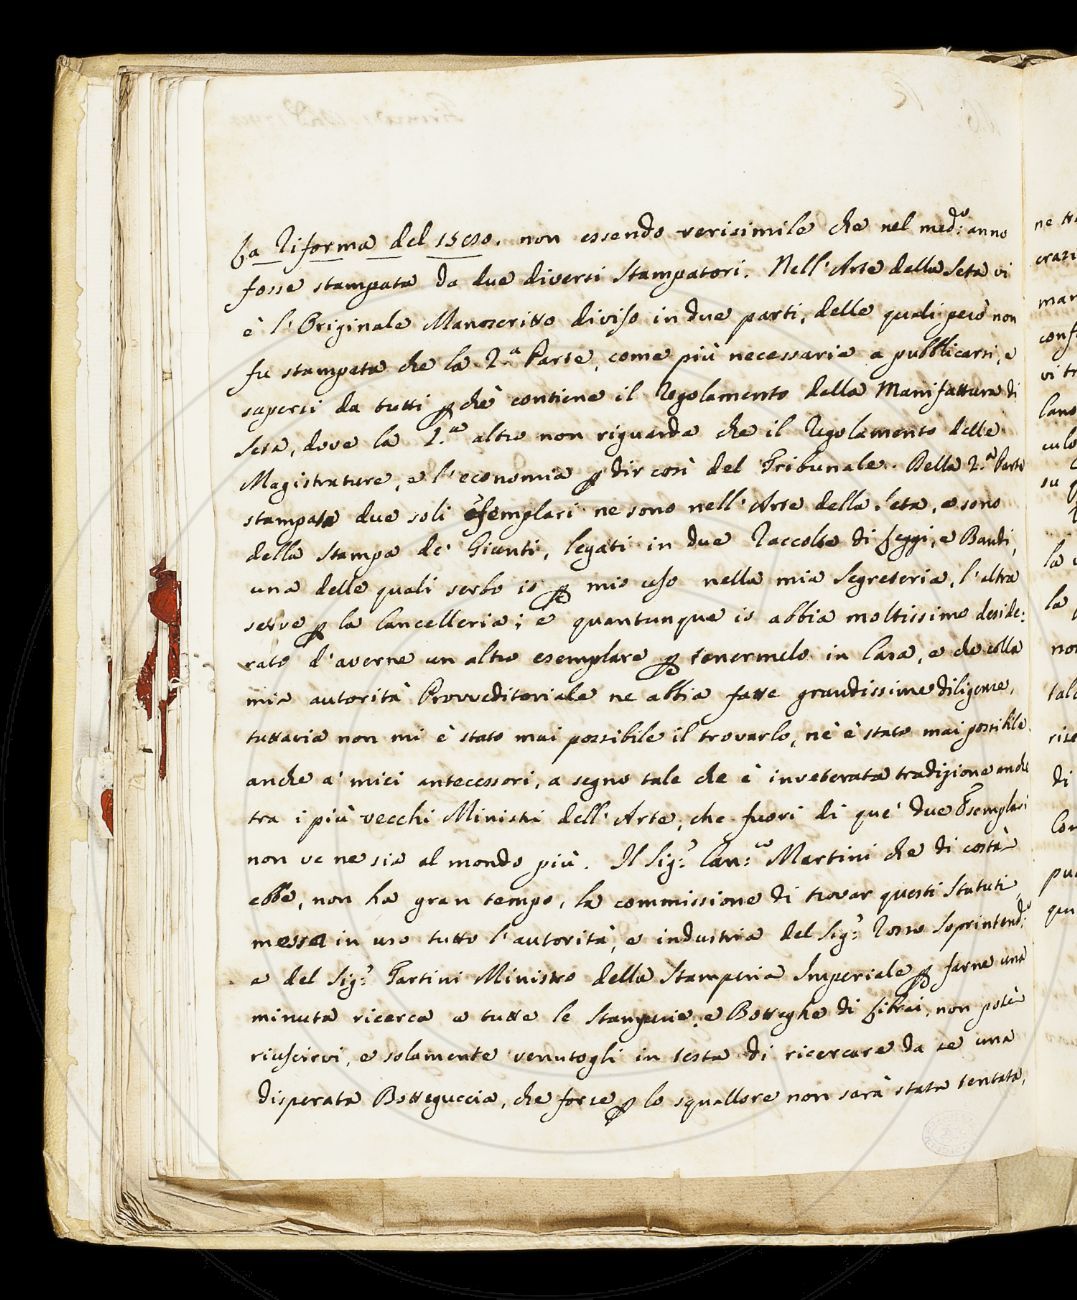 La Riforma del 1580. non essendo verisimile che nel med:º anno
fosse stampata da due diversi Stampatori. Nell'Arte della Seta vi
è l'Originale Manoscritto diviso in due parti, delle quali però non
fu stampata che la 2.ª Parte, come più necessaria a pubblicarsi, e
sapersi da tutti p chè contiene il Regolamento della Manifattura di
Seta, dove la 1.ª altro non riguarda che il Regolamento delle
Magistrature, e l'economia p dir così del Tribunale. Della 2.ª Parte
stampata due soli esemplari ne sono nell'Arte della Seta, e sono
della Stampa de' Giunti, legati in due Raccolte di Leggi, e Bandi,
una delle quali serbo io p mio uso nella mia Segreteria, l'altra
serve p la Cancelleria; e quantunque io abbia moltissimo deside:
rato d'averne un altro esemplare p tenermelo in Casa, e che colla
mia autorità Provveditoriale ne abbia fatte grandissime diligenze,
tuttavia non mi è stato mai possibile il trovarlo, nè è stato mai possibile
anche a' miei antecessori, a segno tale che è inveterata tradizione anche
tra i più vecchi Ministri dell'Arte, che fuori di que' due Esemplari
non ve ne sia al mondo più. Il Sig:r Can:co Martini che di costà
ebbe, non ha gran tempo, la commissione di trovar questi Statuti
messa in uso tutto l'autorità, e industria del Sig:r Rosso Soprintend:e
e del Sig:r Tartini Ministro della Stamperia Imperiale p farne una
minuta ricerca a tutte le Stamperie, e Botteghe di Librai, non potè
riuscirvi, e solamente venutogli in testa di ricercare da se una
disperata Botteguccia, che forse p lo squallore non sarà stata tentata,